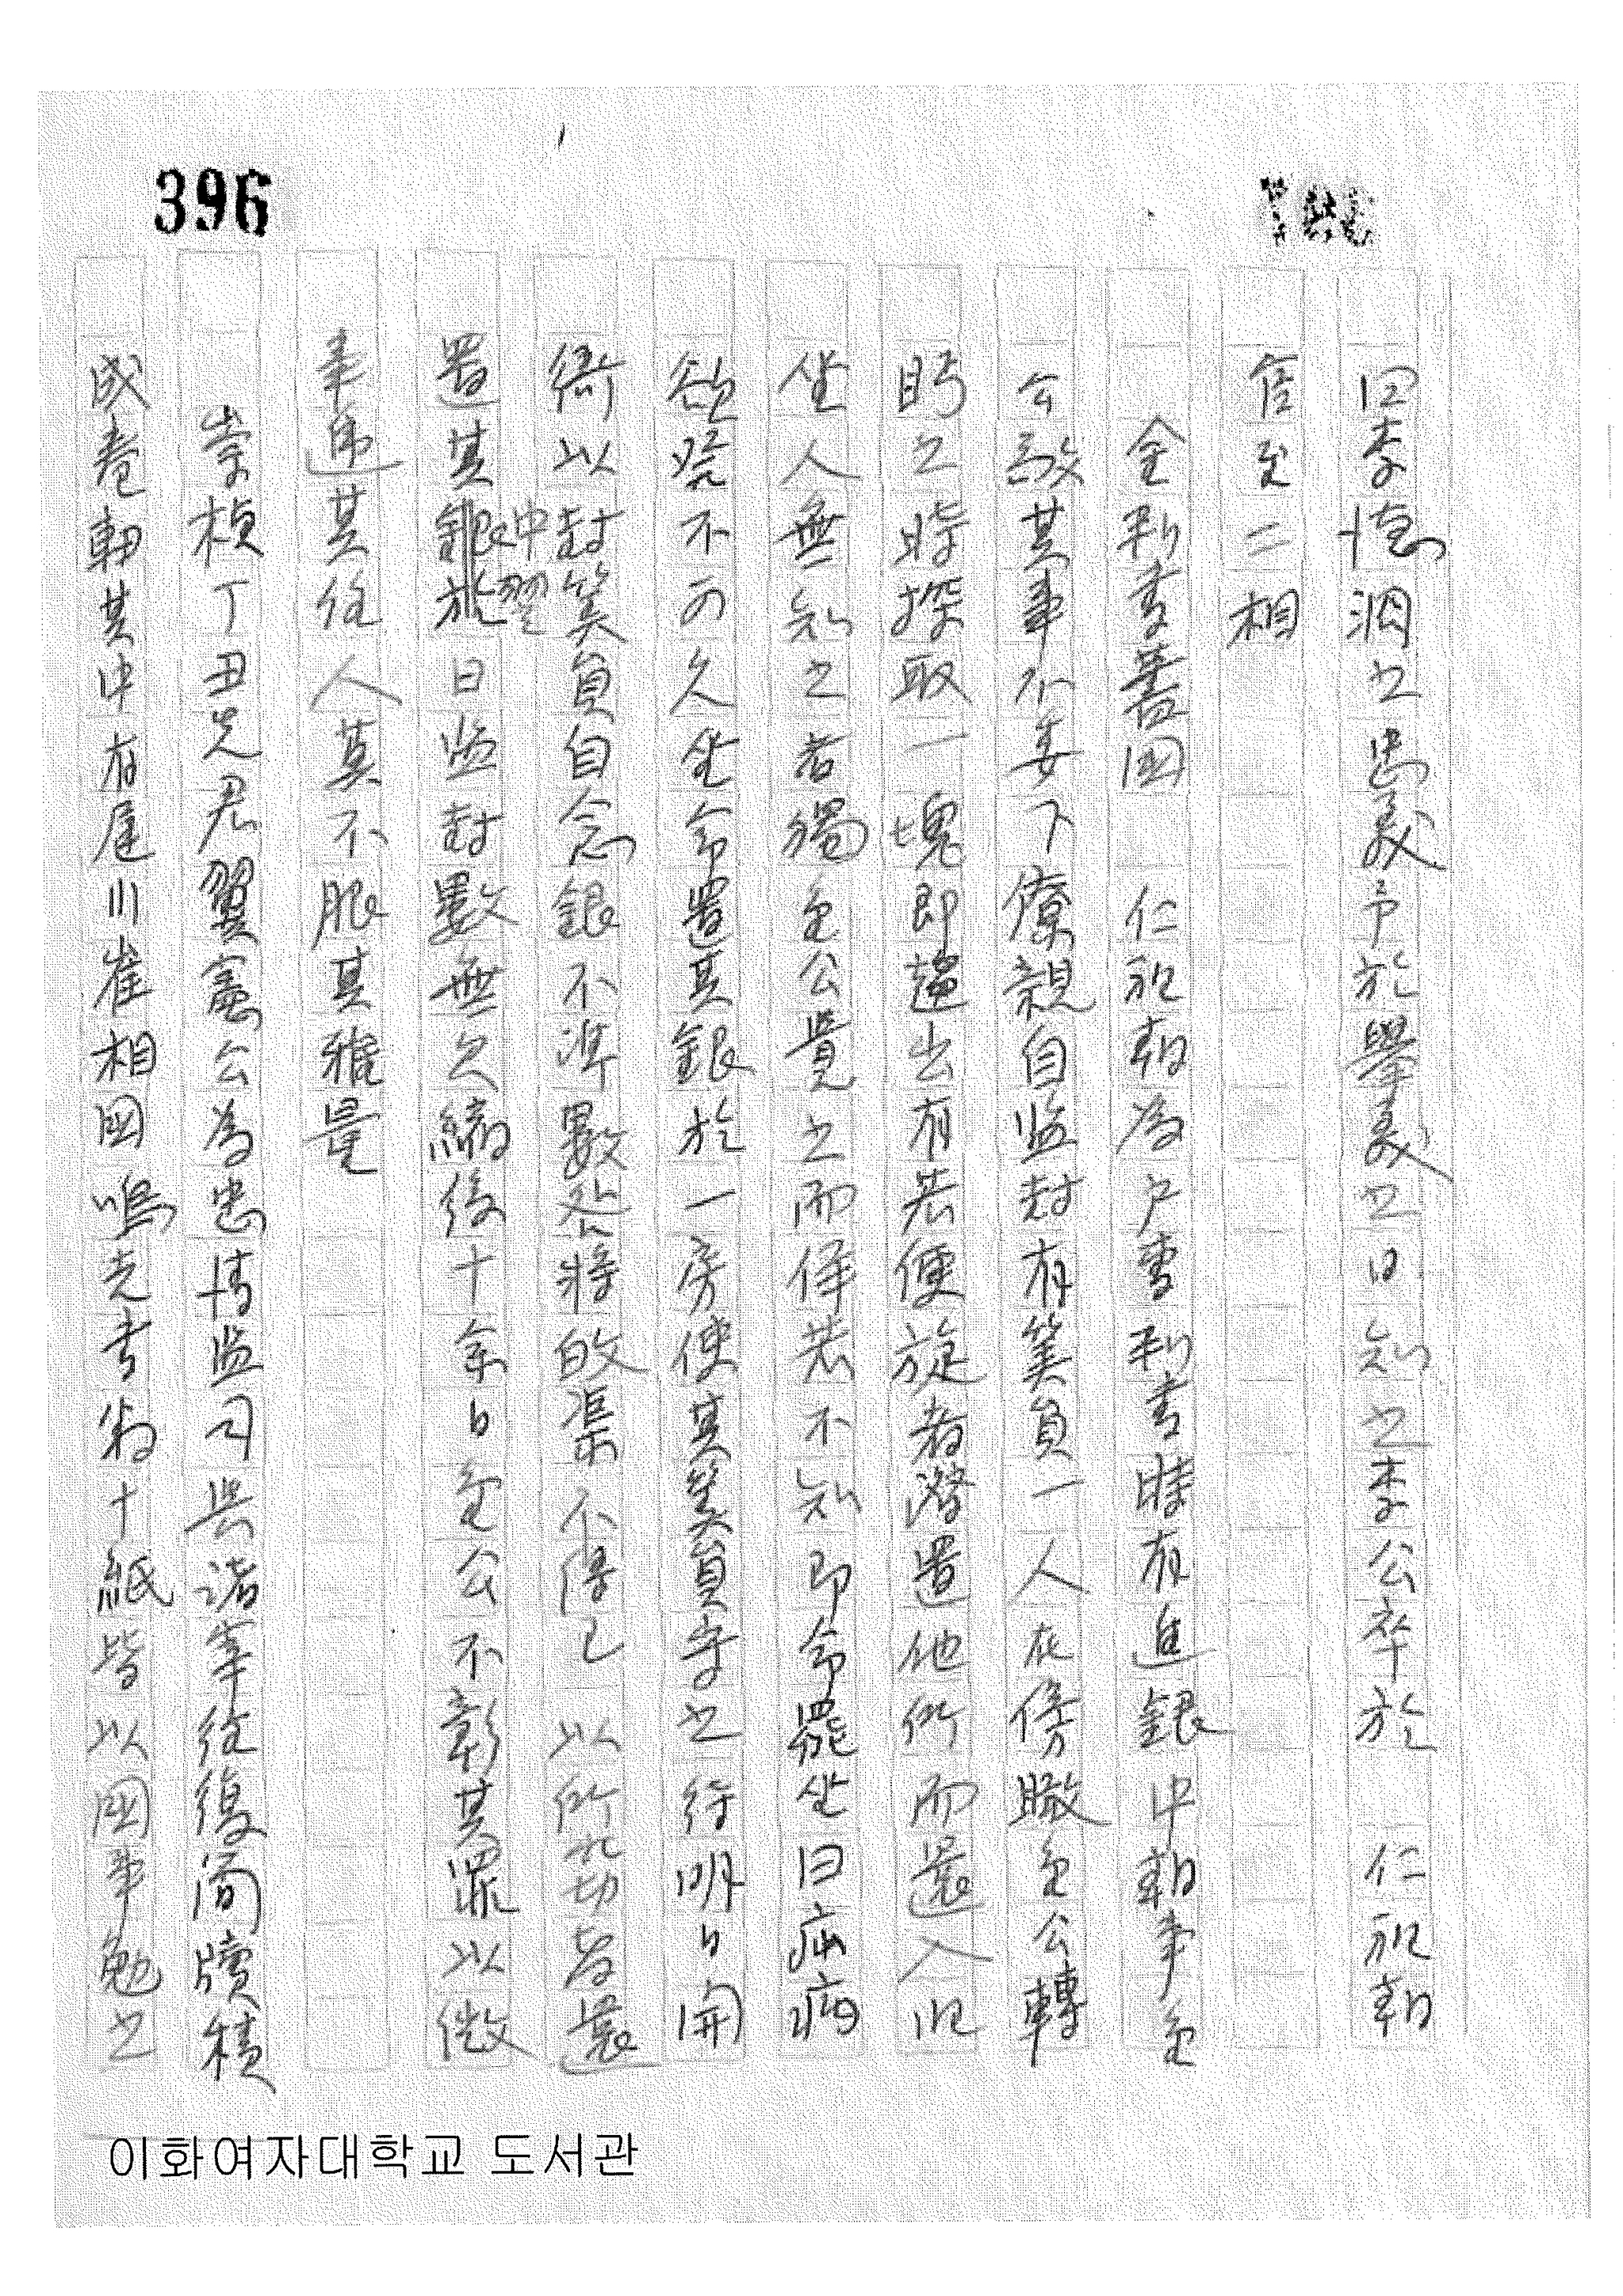 396
曰李德泂也忠義乎於擧義之日知之李公卒於 仁祖朝
官至二相
金判書蓍國 仁祖朝為戶曹判書時有進銀中朝事金
公敬其事不委下僚親自監封有筭員一人在傍瞰金公轉
眄之時探取一塊即趨出有若便旋者潛置他所而還入旧
坐人無知之者獨金公覺之而佯若不知即令罷坐曰痁病
欲發不可久坐令置其銀於一房使其筭員守之待明日開
衙以封筭員自念銀不準數必將敀集不得已以所竊者還
置其中翌日監封數無欠縮後十余日金公不彰其罪以微
事遞其任人莫不服其雅量
崇禎丁丑先君翼憲公為忠清監司與諸宰往復簡牘積
成卷軸其中有遲川崔相國鳴吉書札十紙皆以國事勉之
이화여자대학교 도서관